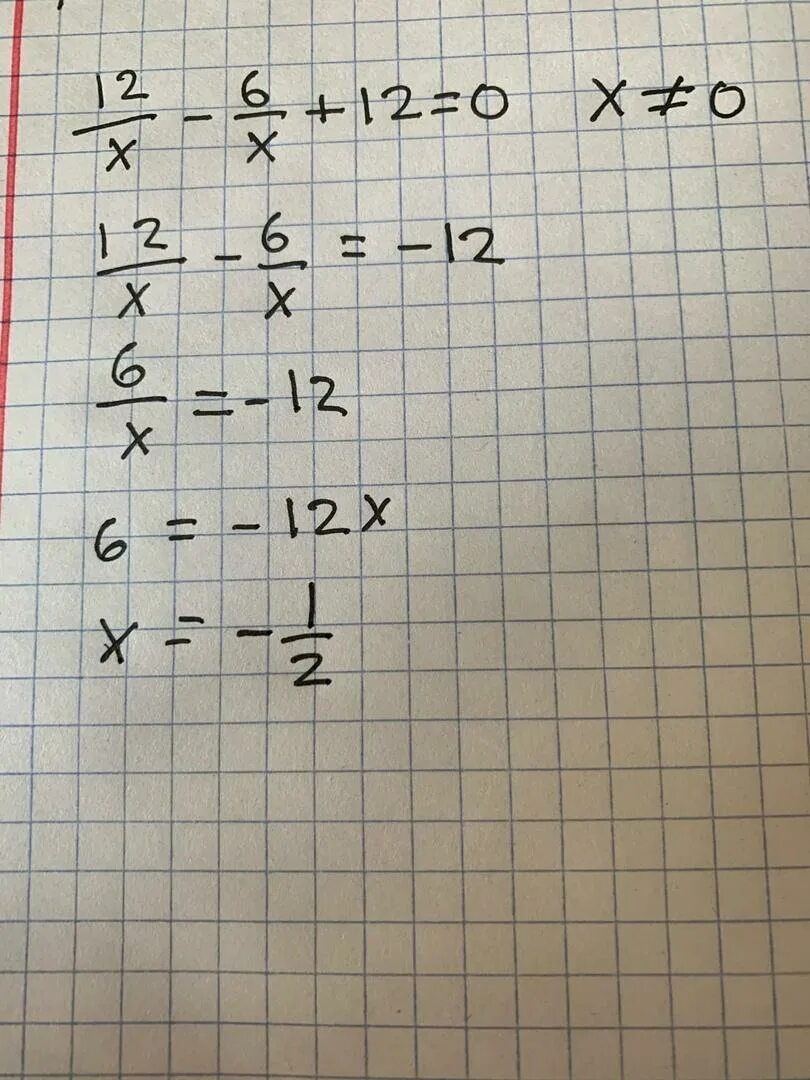 12/x - 6/x + 12 = 0 x ≠ 0
12/x - 6/x = -12
6/x = -12
6 = -12x
x = -1/2